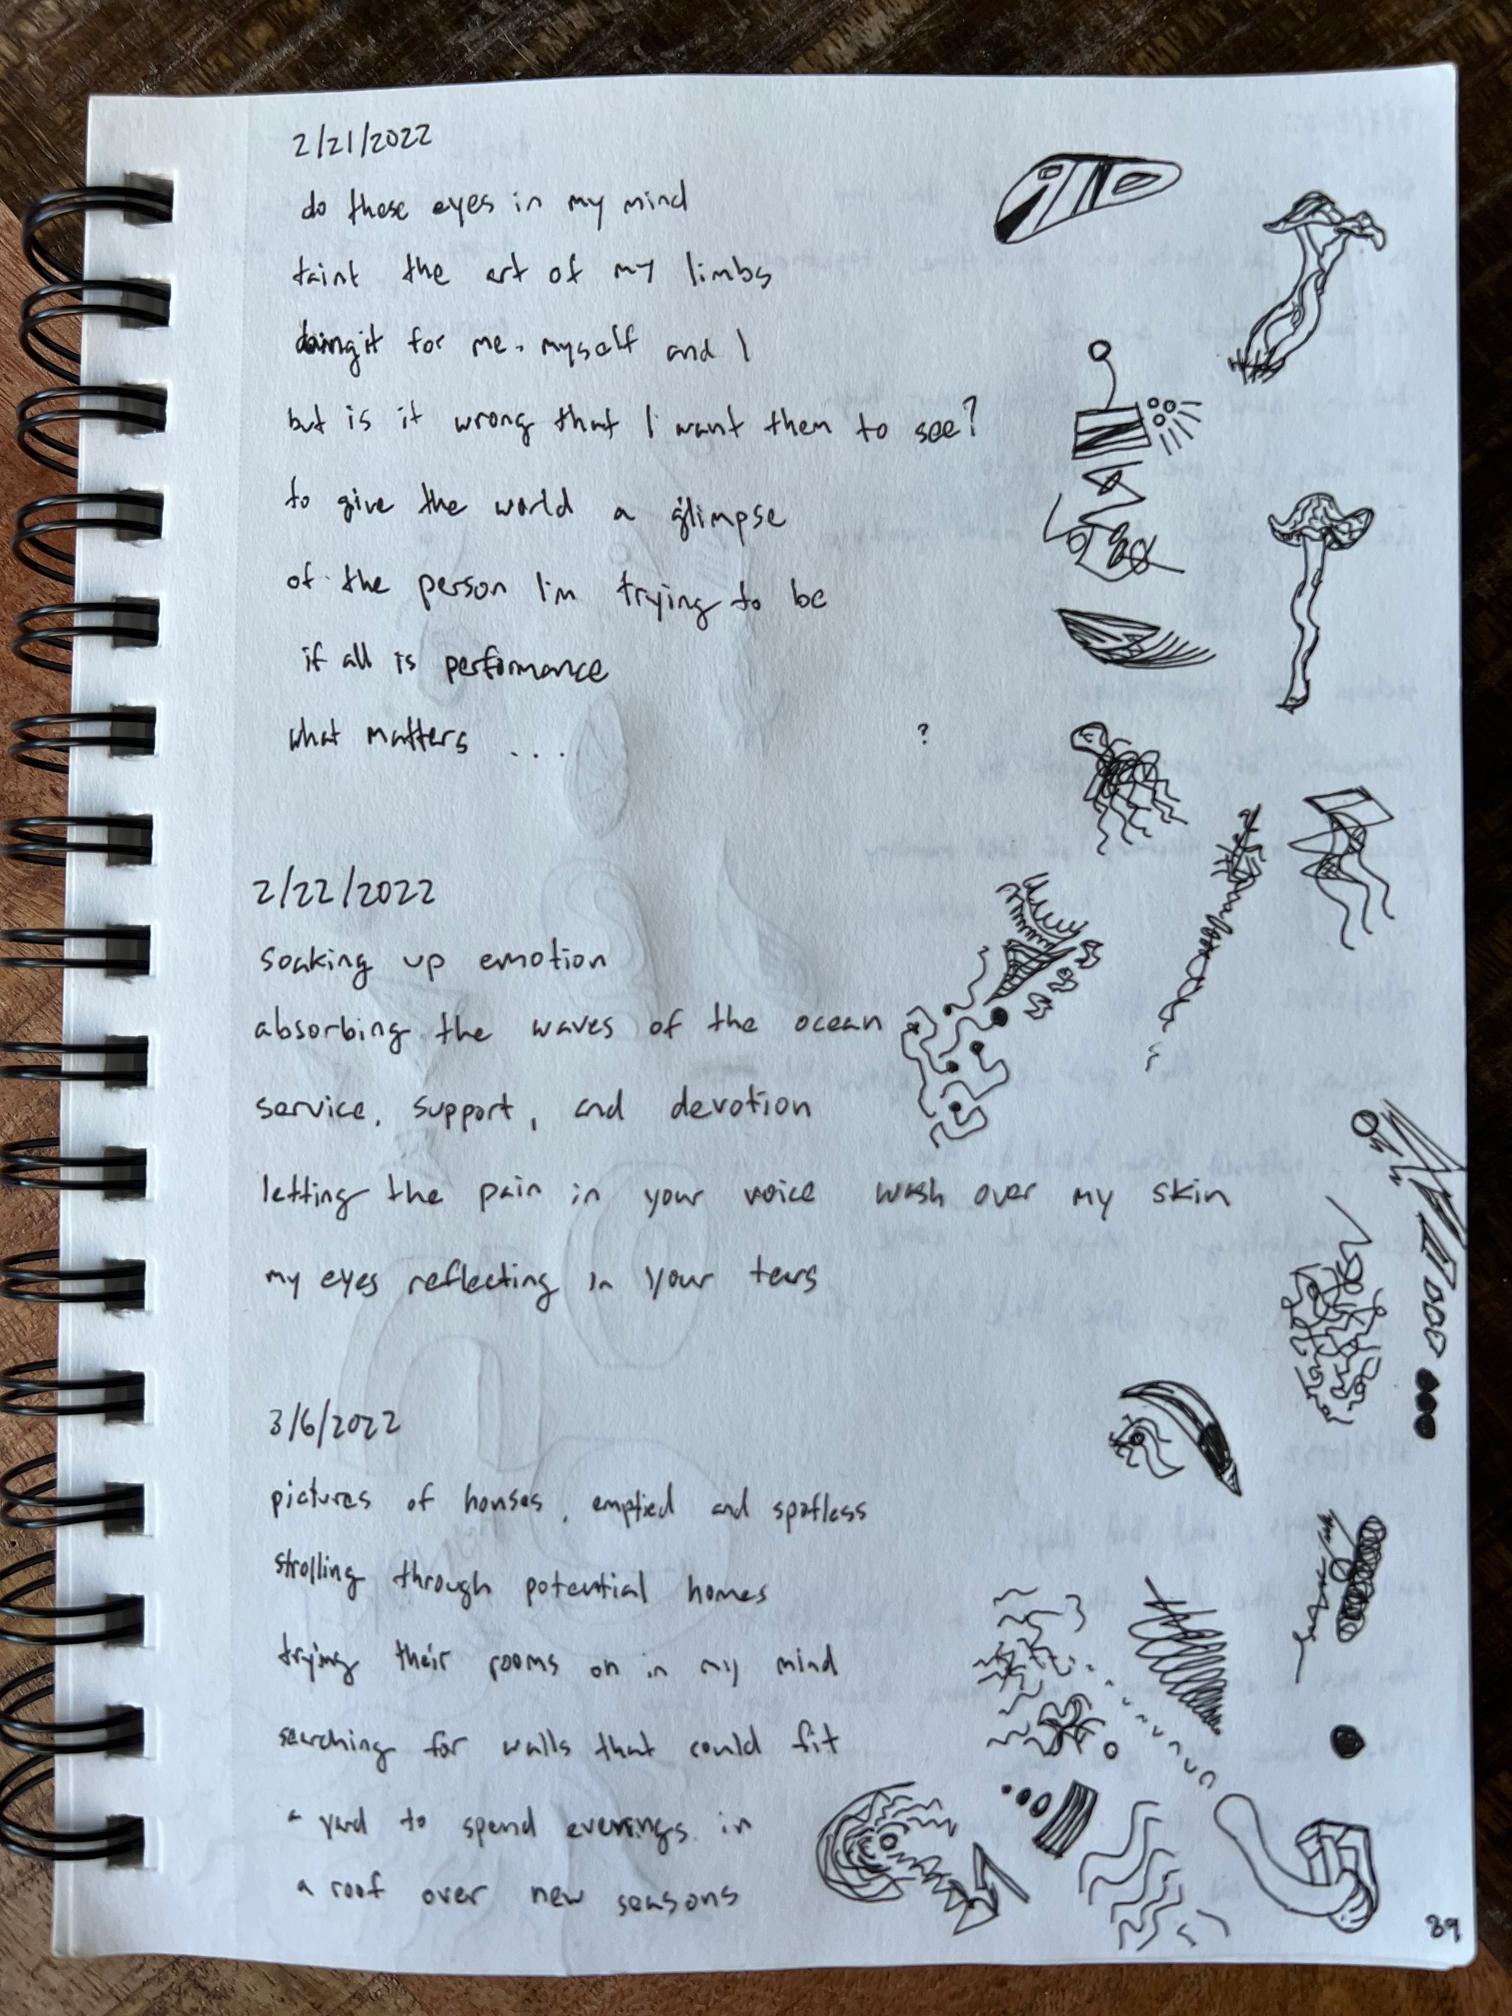 2/21/2022
do these eyes in my mind
taint the art of my limbs
doing it for me, myself and I
but is it wrong that I want them to see?
to give the world a glimpse
of the person I'm trying to be
if all is performance
what matters ... ?
2/22/2022
soaking up emotion
absorbing the waves of the ocean
service, support, and devotion
letting the pain in your voice wash over my skin
my eyes reflecting in your tears
3/6/2022
pictures of houses, emptied and spotless
strolling through potential homes
trying their rooms on in my mind
searching for walls that could fit
a yard to spend evenings in
a roof over new seasons
39